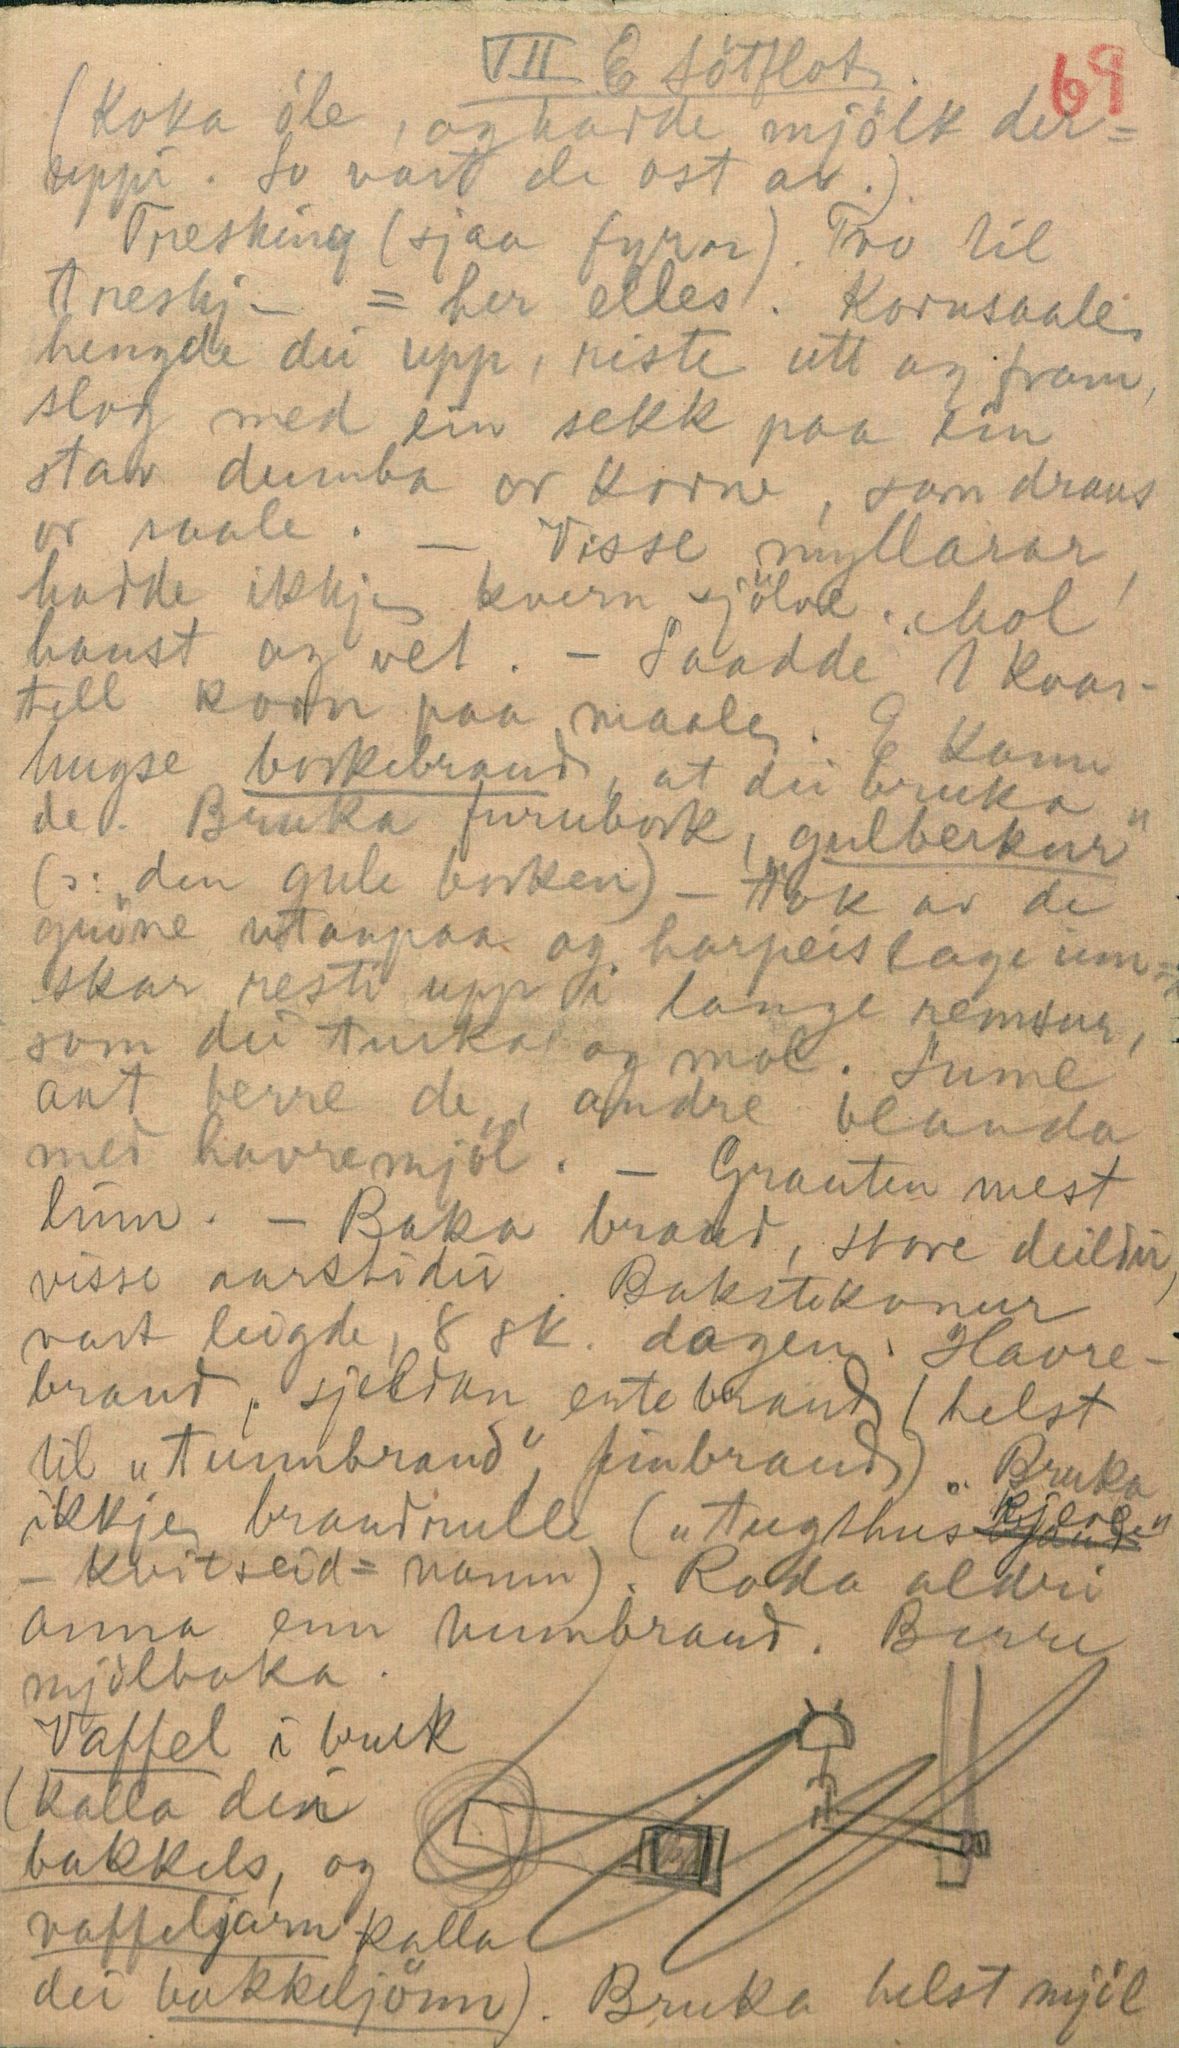 VII E Sötflot.
69
(Koka öle, og hadde mjölk der=
uppi. So vart de ost av.)
Tresking (sjaa fyrr). Tro til
treskj- = her elles. Kornsaale,
hengde dei upp, riste utt og fram,
slog med ein sekk paa ein
stav dumba or korne, som draus
or saale. — Visse myllarar,
hadde ikkje kvern sjölve. Mol
haust og vet. – Saadde 1 kvar-
tell korn paa maale. E kann
hugse borkebraud, at dei bruka
de. Bruka furubork, "gulberkur"
(ɔ: den gule borken) – tok av de
gröne utanpaa og harpeislage inn=
skar resti upp i lange remsur,
som dei turka og mol. Sume
aat berre de, andre blanda
med havremjöl. — Grauten mest
linn. – Baka braud, store deildir,
visse aarstidir. Bakstekonur
vart leigde, 8 sk. dagen. Havre-
braud, sjeldan ertebraud (helst
til „tunnbraud", finbraud). Bruka
ikkje braudrulle („tugthuskjevle"
– Kvitseid= namn). Rada aldri
anna enn tunnbraud. Berre
mjölbaka.
Vaffel i bruk
(kalla dei
bakkels, og
vaffeljarn kalla
dei bakkeljönn). Bruka helst mjöl